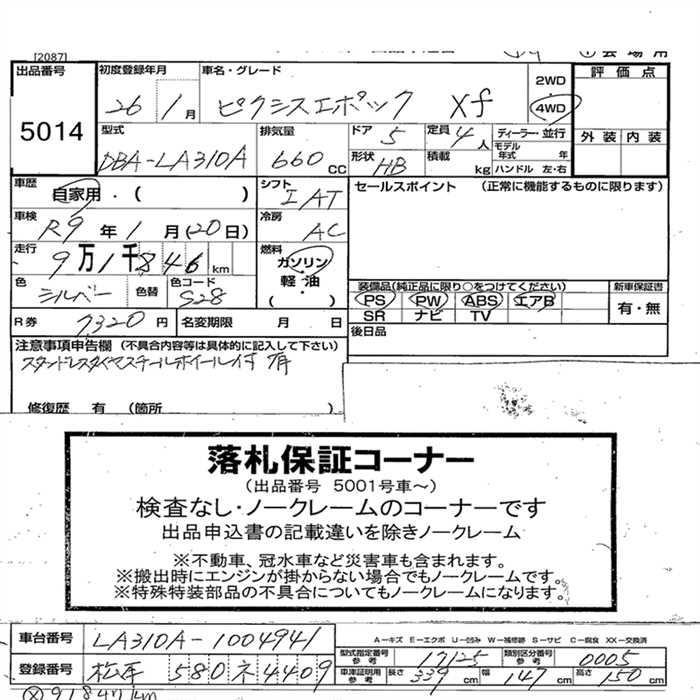 [2087]
出品番号 初度登録年月 車名・グレード 2WD 評価点
5014 26 1月 ピクシスエポック Xf 4WD
型式 排気量 ドア 5 定員 4人 ディーラー・並行 外装 内装
モデル年式 年
DBA-LA310A 660CC 形状 HB 積載 kg ハンドル 左・右
車歴 自家用・( ) シフト I AT セールスポイント (正常に機能するものに限ります)
車検 R9年1月(20日) 冷房 AC
走行 9万1千846km 燃料 ガソリン
軽・油
( )
色 シルバー 色替 色コード S28 装備品(純正品に限り○をつけてください) 新車保証書
PS PW ABS エアB 有・無
SR ナビ TV
R券 7320円 名変期限 月 日 後日品
注意事項申告欄 (不具合内容等は具体的に記入して下さい)
スタットレスタイヤスチールホイール付 有
修復歴 有 (箇所
落札保証コーナー
(出品番号 5001号車~)
検査なし・ノークレームのコーナーです
出品申込書の記載違いを除きノークレーム
※不動車、冠水車など災害車も含まれます。
※搬出時にエンジンが掛からない場合でもノークレームです。
※特殊特装部品の不具合についてもノークレームになります。
A-キズ E-エクボ U-凹み W-補修跡 S-サビ C-腐食 XX-交換済
車台番号 LA310A-1004941 型式指定番号 参考 17125 類別区分番号 参考 0005
登録番号 松本 580 ネ 4409 車庫証明用 参考 長さ 339cm 幅 147cm 高さ 150cm
91847km